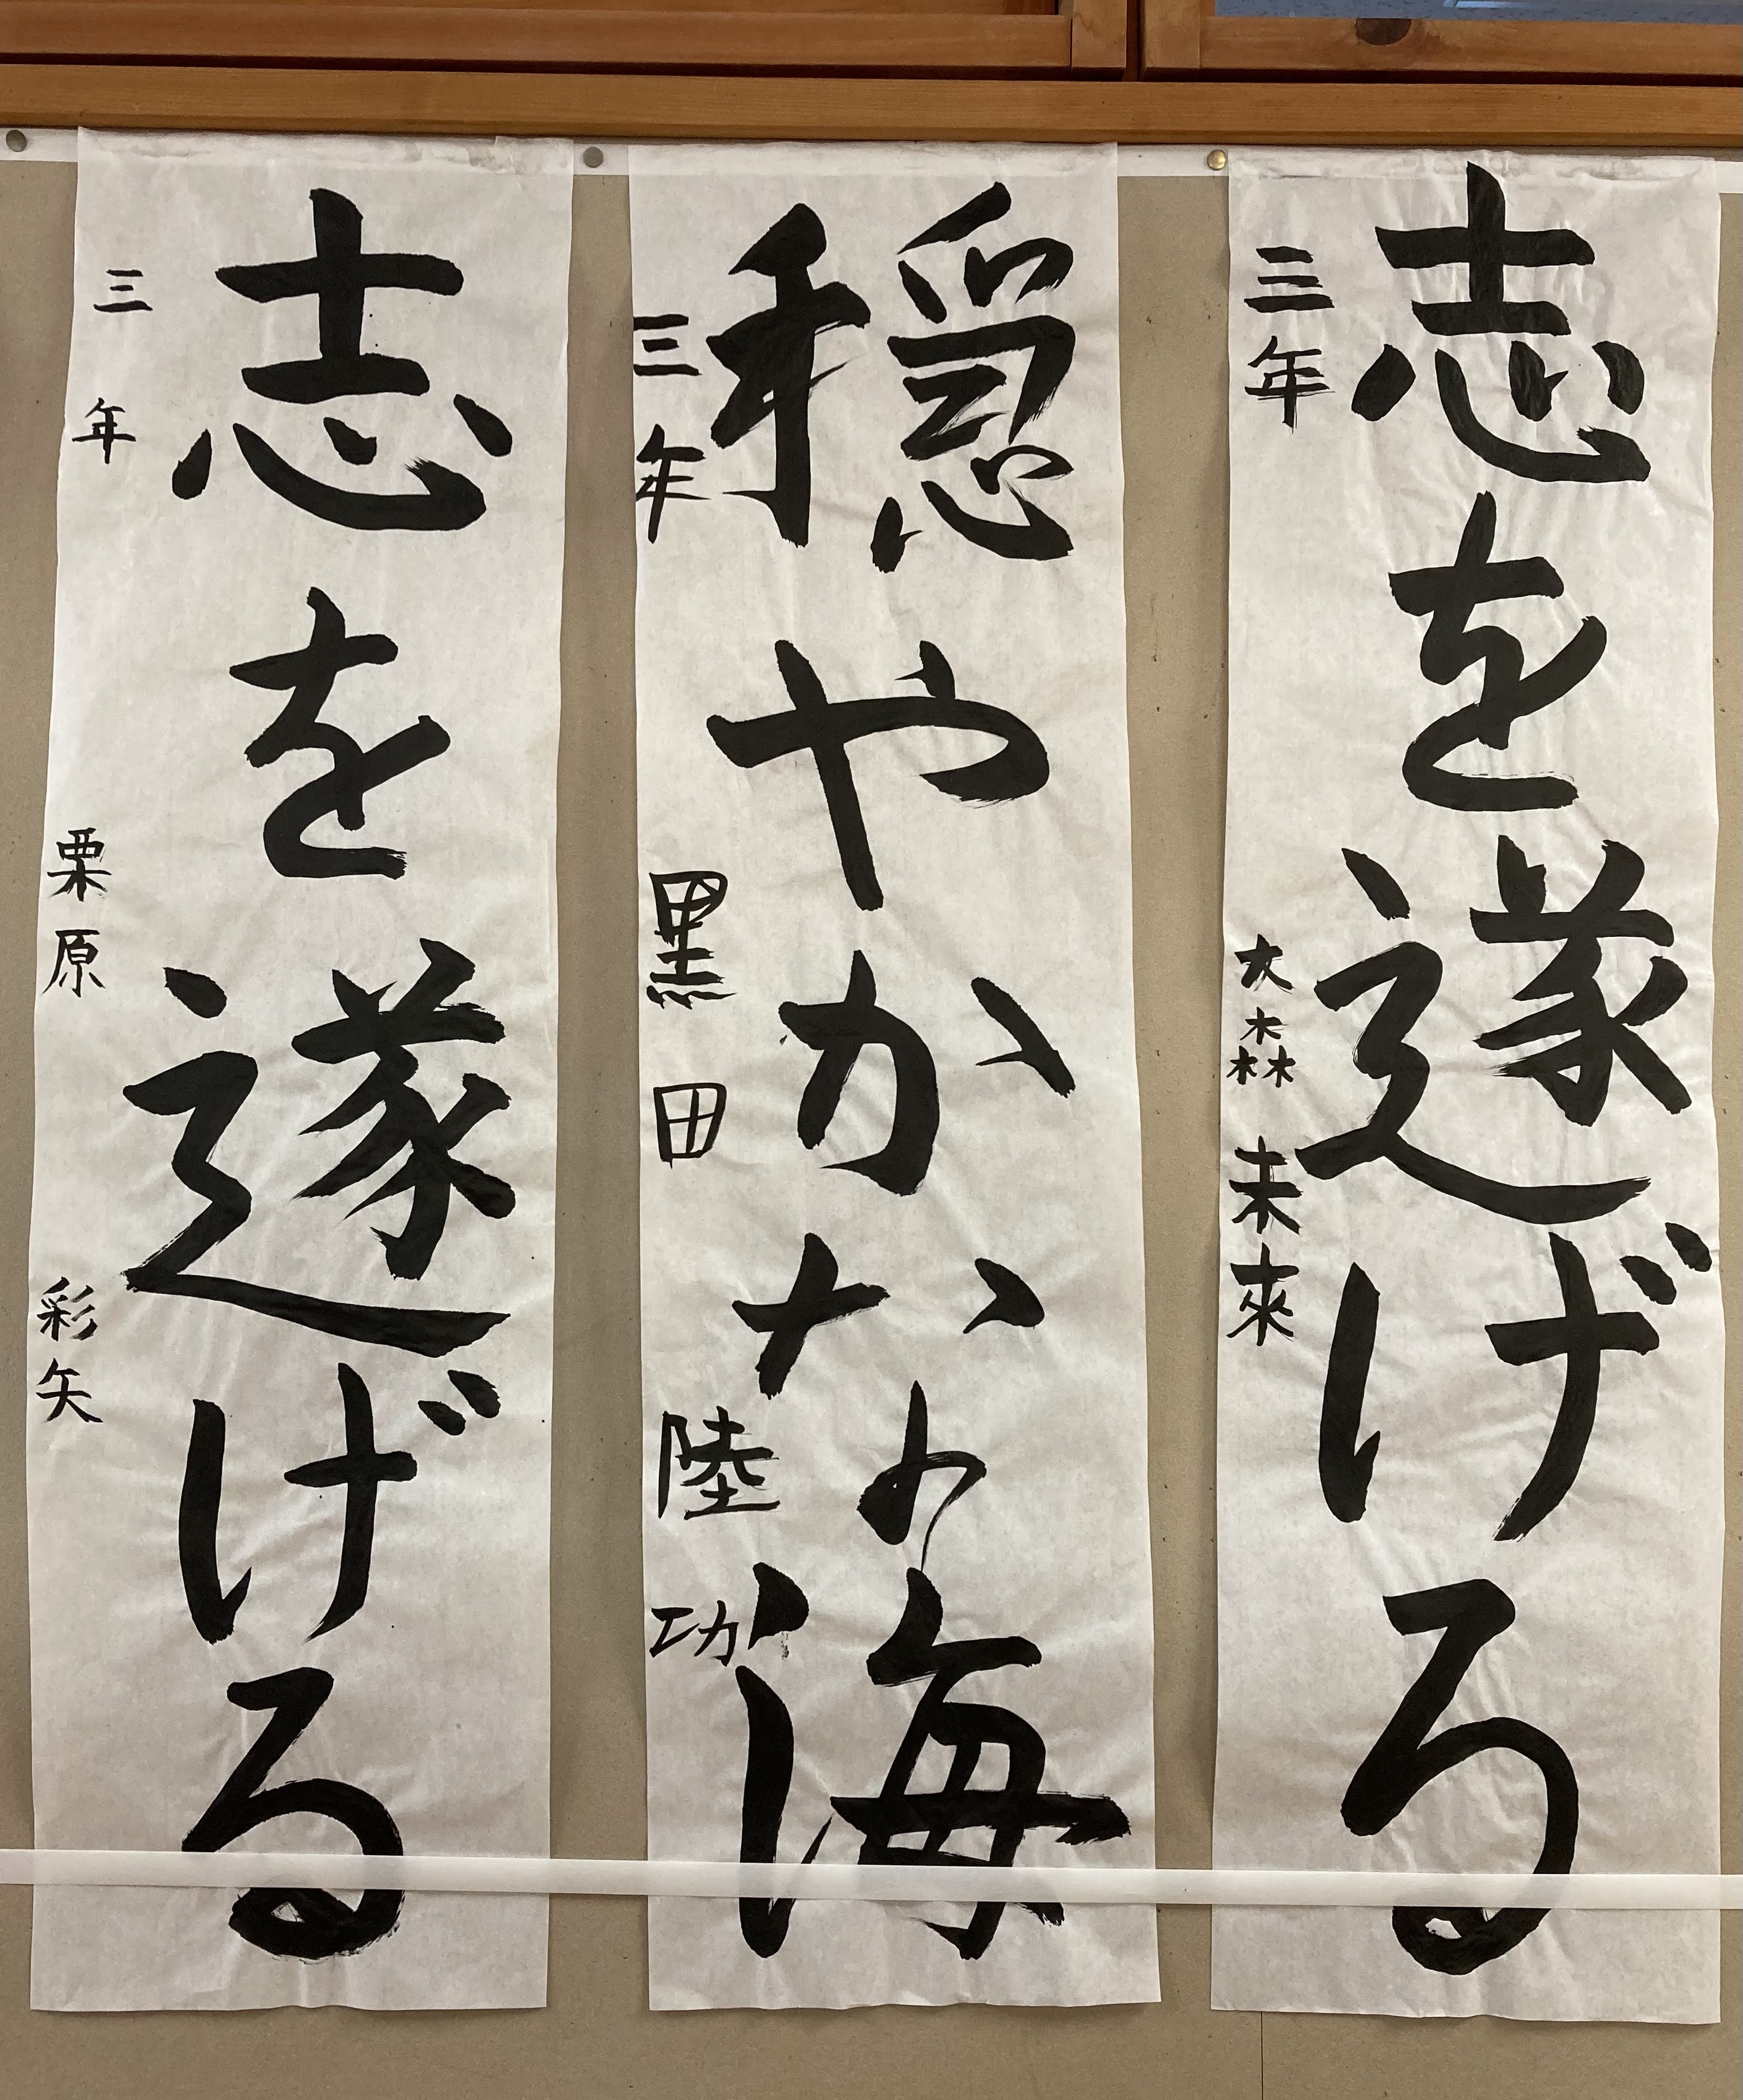 志を遂げる
三年 大森 未来
穏やかな海
三年 黒田 陸功
志を遂げる
三年 栗原 彩矢